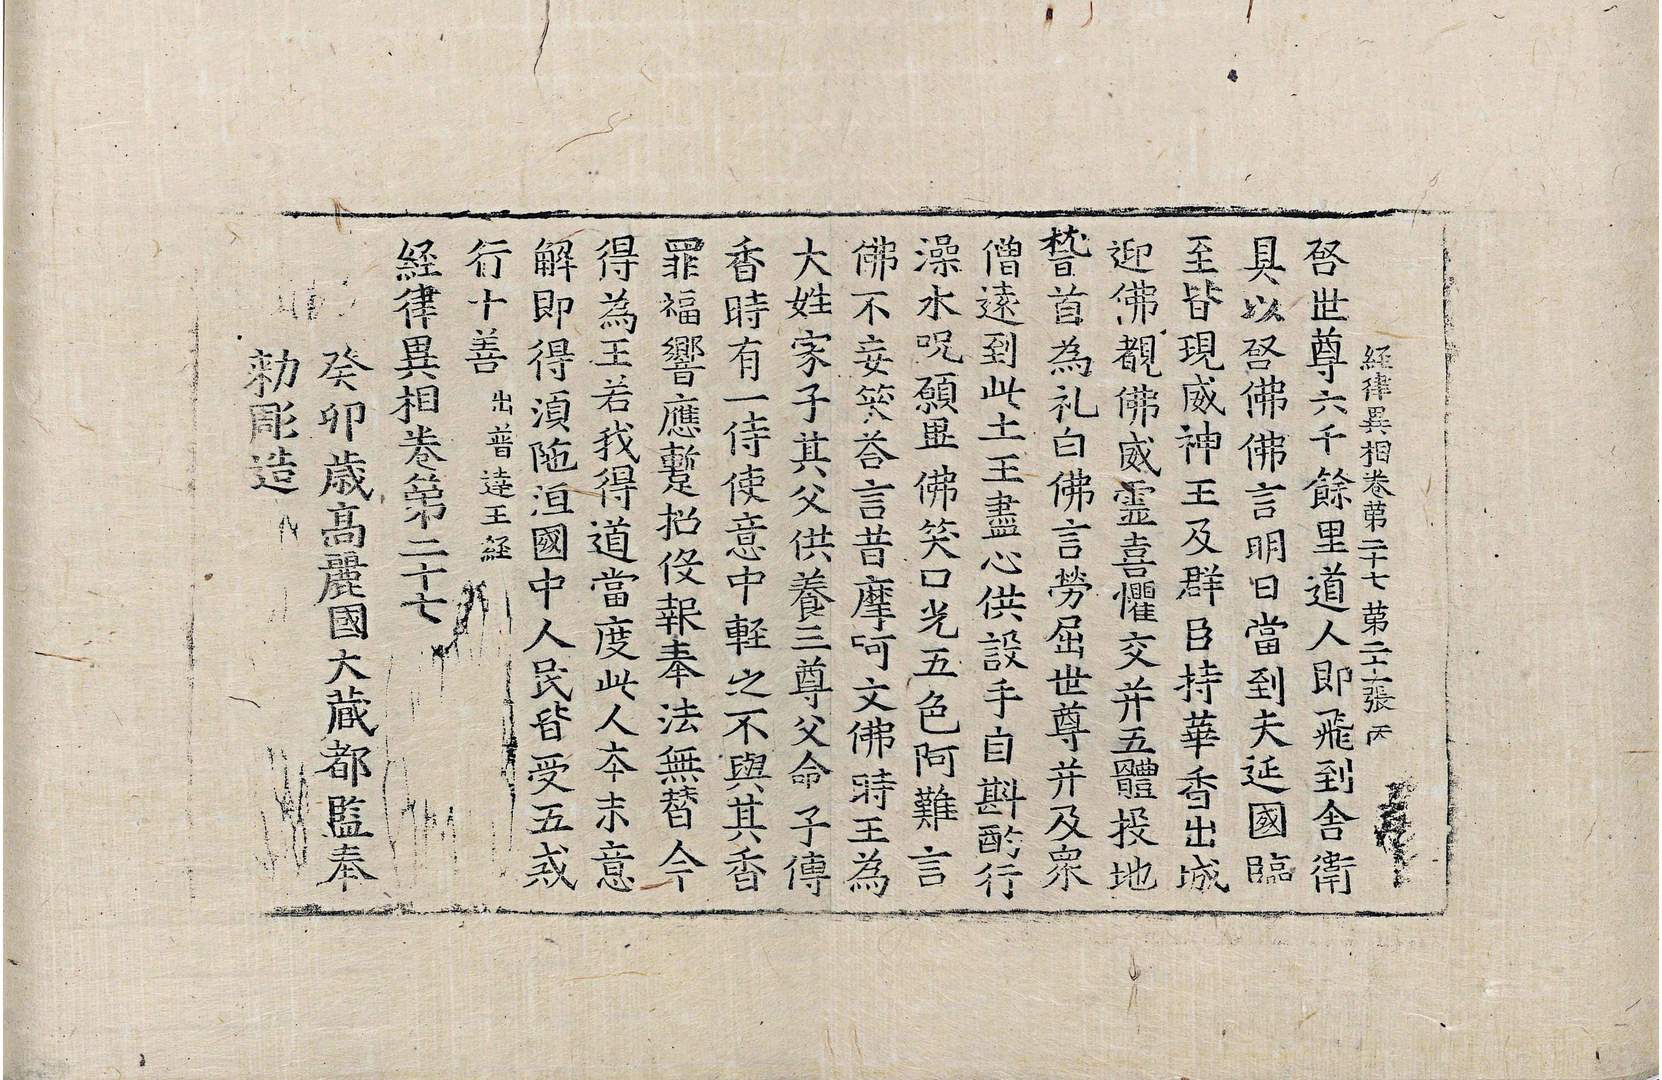 経律異相卷第二十七 第二十張 丙
啓世尊六千餘里道人即飛到舍衛
具以啓佛佛言明日當到夫延國臨
至皆現威神王及群臣持華香出城
迎佛覩佛威靈喜懼交并五體投地
稽首為礼白佛言勞屈世尊并及眾
僧遠到此土王盡心供設手自斟酌行
澡水呪願畢佛笑口光五色阿難言
佛不妄笑荅言昔摩呵文佛時王為
大姓家子其父供養三尊父命子傳
香時有一侍使意中軽之不與其香
罪福響應蹔招伇報奉法無替今
得為王若我得道當度此人本末意
解即得湏陁洹國中人民皆受五戒
行十善 出普達王経
経律異相卷第二十七
癸卯歲高麗國大藏都監奉
勑彫造